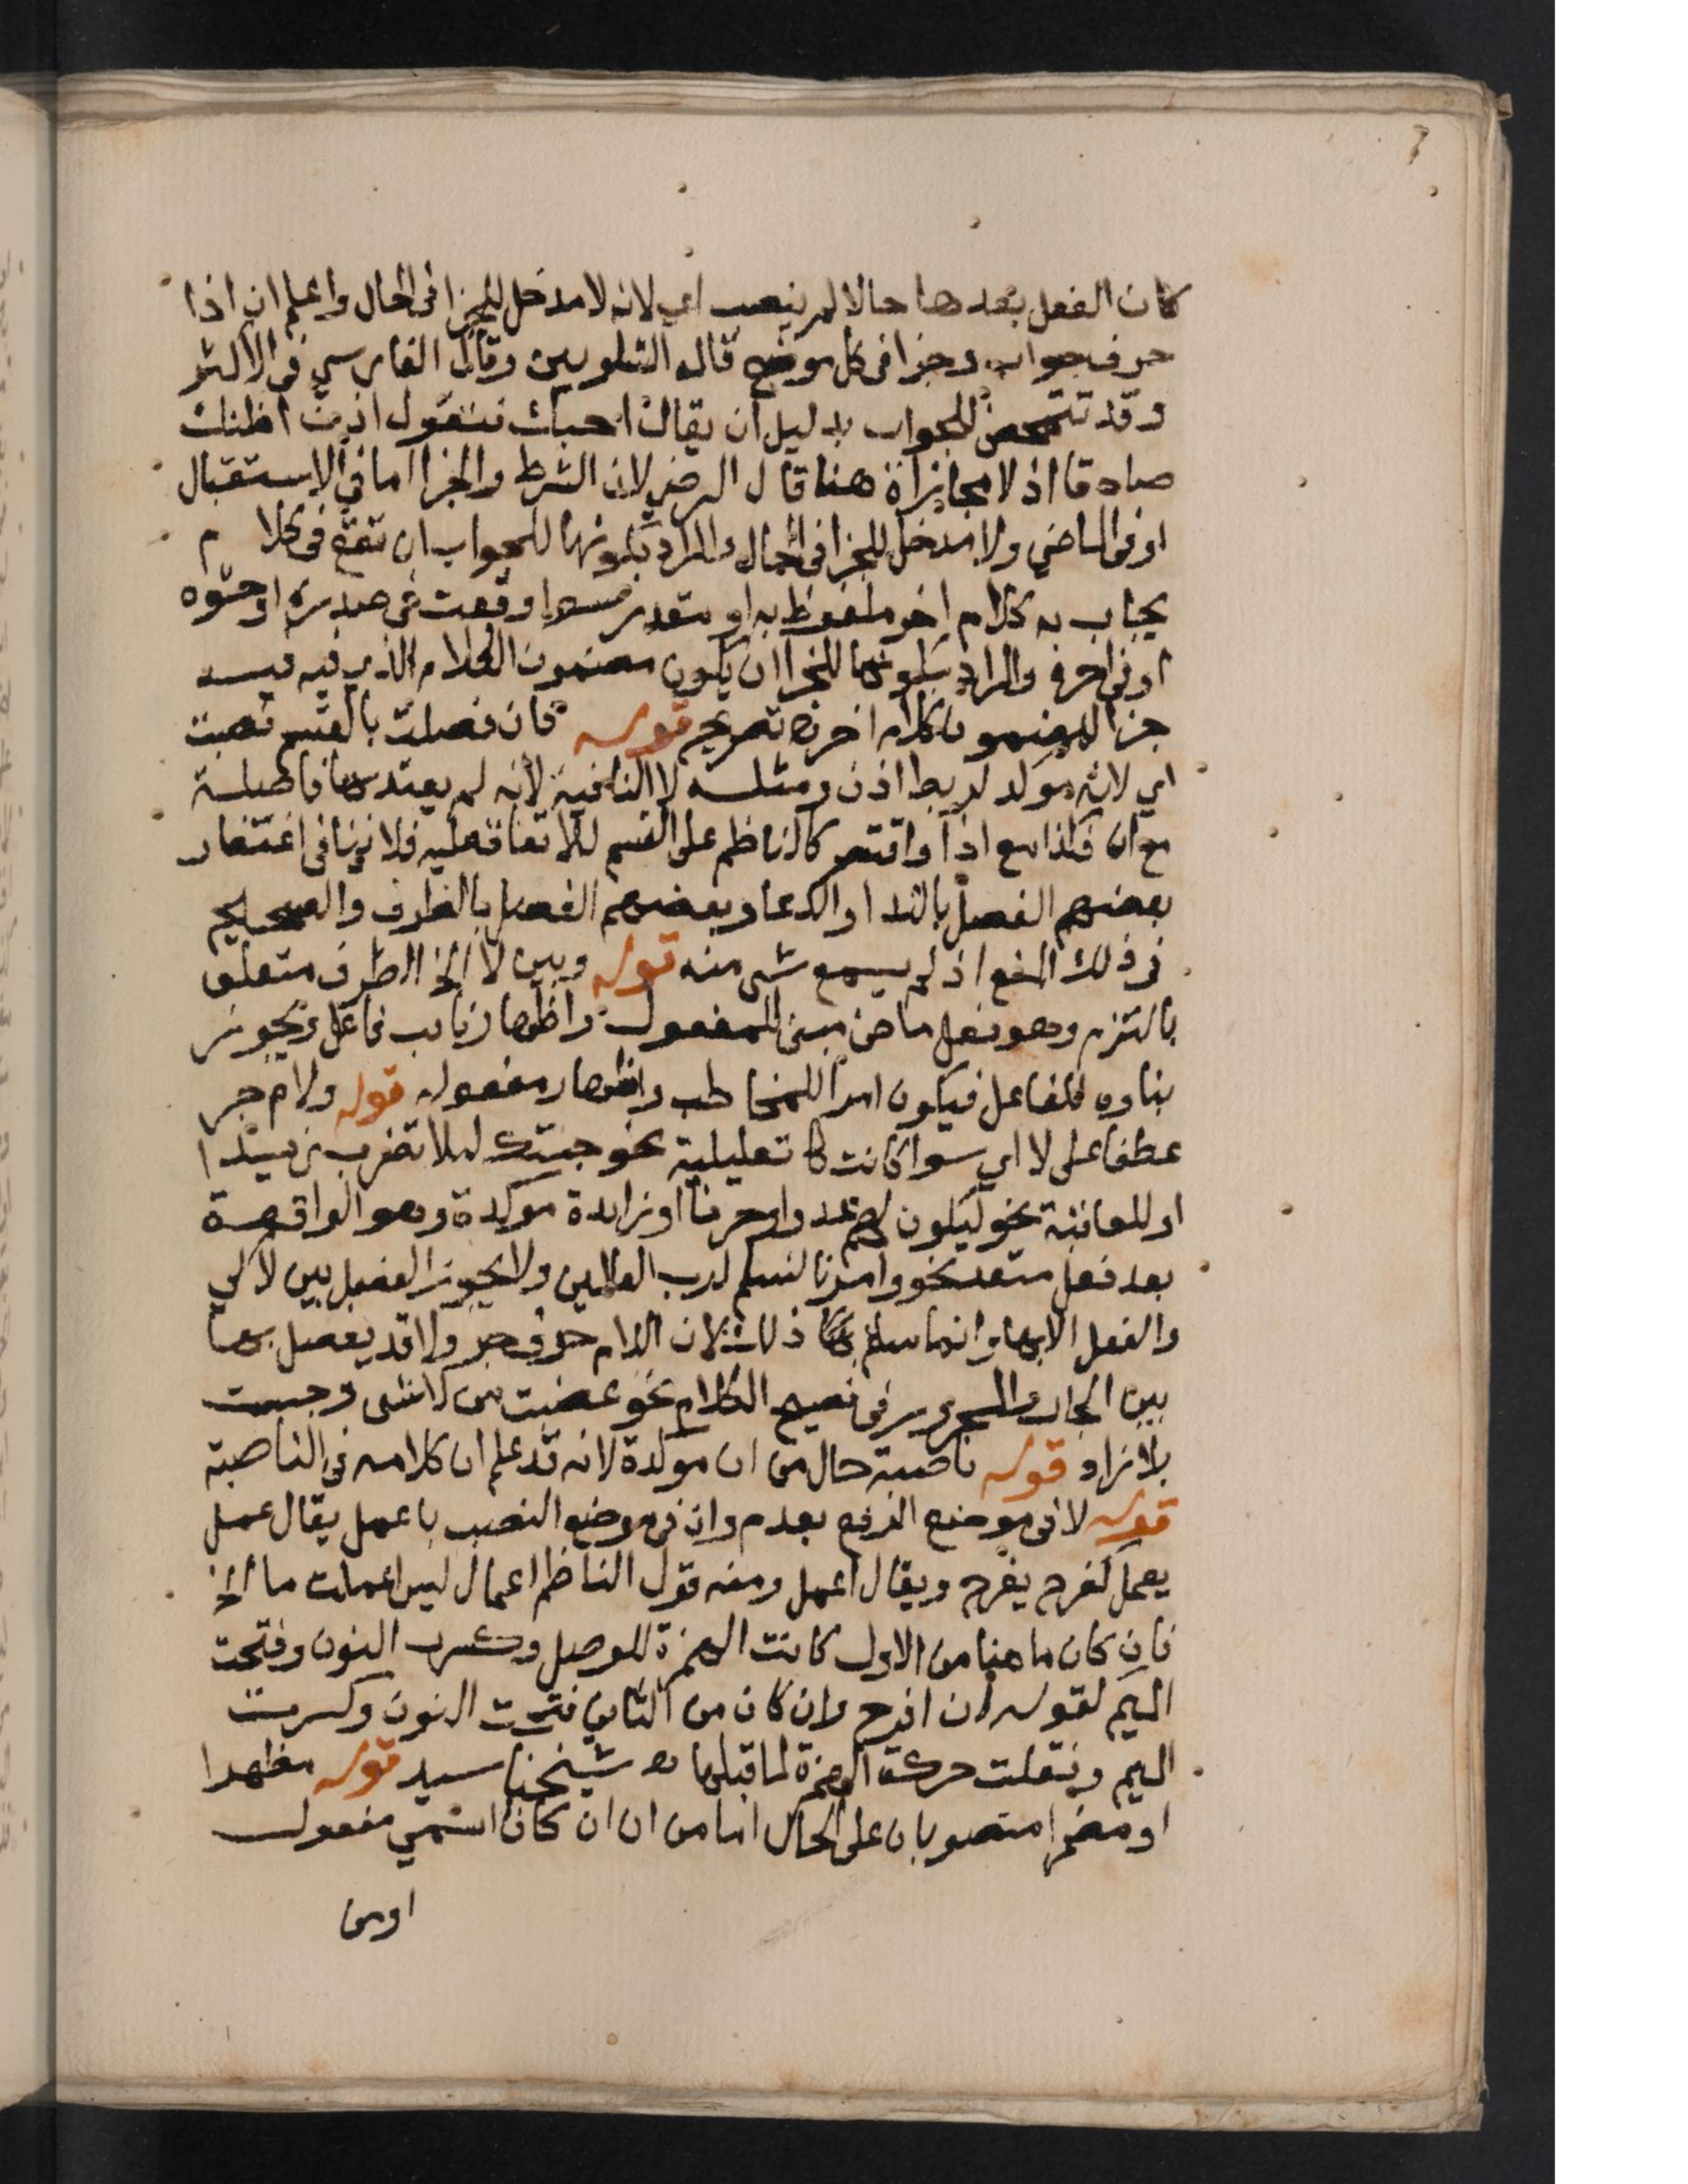 كان الفعل بعدها حالا لم ينصب اي لانه لا مدخل للجزا في الحال واعلم ان اذا
حرف جواب وجزا في كل موضع قاله الشلوبين وقال الفارسي في الاكثر
وقد تتمحض للجواب بدليل ان يقال احبك فتقول اذن اظنك
صادقا اذ لا مجازاة هنا قال الرضي لان الشرط والجزا اما في الاستقبال
او في الماضي ولا مدخل للجزا في الحال والمراد بكونها للجواب ان تقع في كلام
يجاب به كلام اخر ملفوظ به او مقدر سوا وقعت في صدره او حشوه
او في اخره والمراد بكونها للجزا ان يكون مضمون الكلام الذي فيه
جزا لمضمون كلام اخر اه تصريح قوله فان فصلت بالقسم نصبت
اي لانه موكد لربط اذن ومثله لا النافية لانه لم يعتد بها فاصلة
مع ان فكذا مع اذا واقتصر كالناظم على القسم للاتفاق عليه فلا ينافي اغتفار
بعضهم الفصل بالندا والدعا وبعضهم الفصل بالظرف والصحيح
في ذلك المنع اذ لم يسمع شي منه قوله وبين لا الخ الظرف متعلق
بالتزم وهو فعل ماض مبني للمفعول واظهار نايب فاعل ويجوز
بناوه للفاعل فيكون امرا للمخاطب واظهار مفعوله قوله ولام جر
عطف على لا اي سوا كانت تعليلية نحو جيتك ليلا تضرب زيدا
او للعاقبة نحو ليكون لهم عدوا وحزنا او زايدة موكدة وهو الواقعة
بعد فعل متعد نحو وامرنا لنسلم لرب العالمين ولا يجوز الفصل بين لام كي
والفعل الا بها وانما ساغ ذلك لان اللام حرف جر ولا قد يفصل بها
بين الجار والمجرور في فصيح الكلام نحو غضبت من لا شي وجيت
بلا زاد قوله ناصبة حال من ان موكدة لانه قد علم ان كلامه في الناصبة
قوله لا في موضع الرفع بعدم وان في موضع النصب باعمل يقال عمل
يعمل كفرح يفرح ويقال اعمل ومنه قول الناظم اعمال ليس اعملت ما الخ
فان كان ما هنا من الاول كانت الهمزة للوصل وكسرت النون وفتحت
الميم لقوله ان افرح وان كان من الثاني فتحت النون وكسرت
الميم ونقلت حركة الهمزة لما قبلها اه شيخنا سيد قوله مظهرا
او مضمرا منصوبان على الحال اما من ان ان كان اسمي مفعول
او من